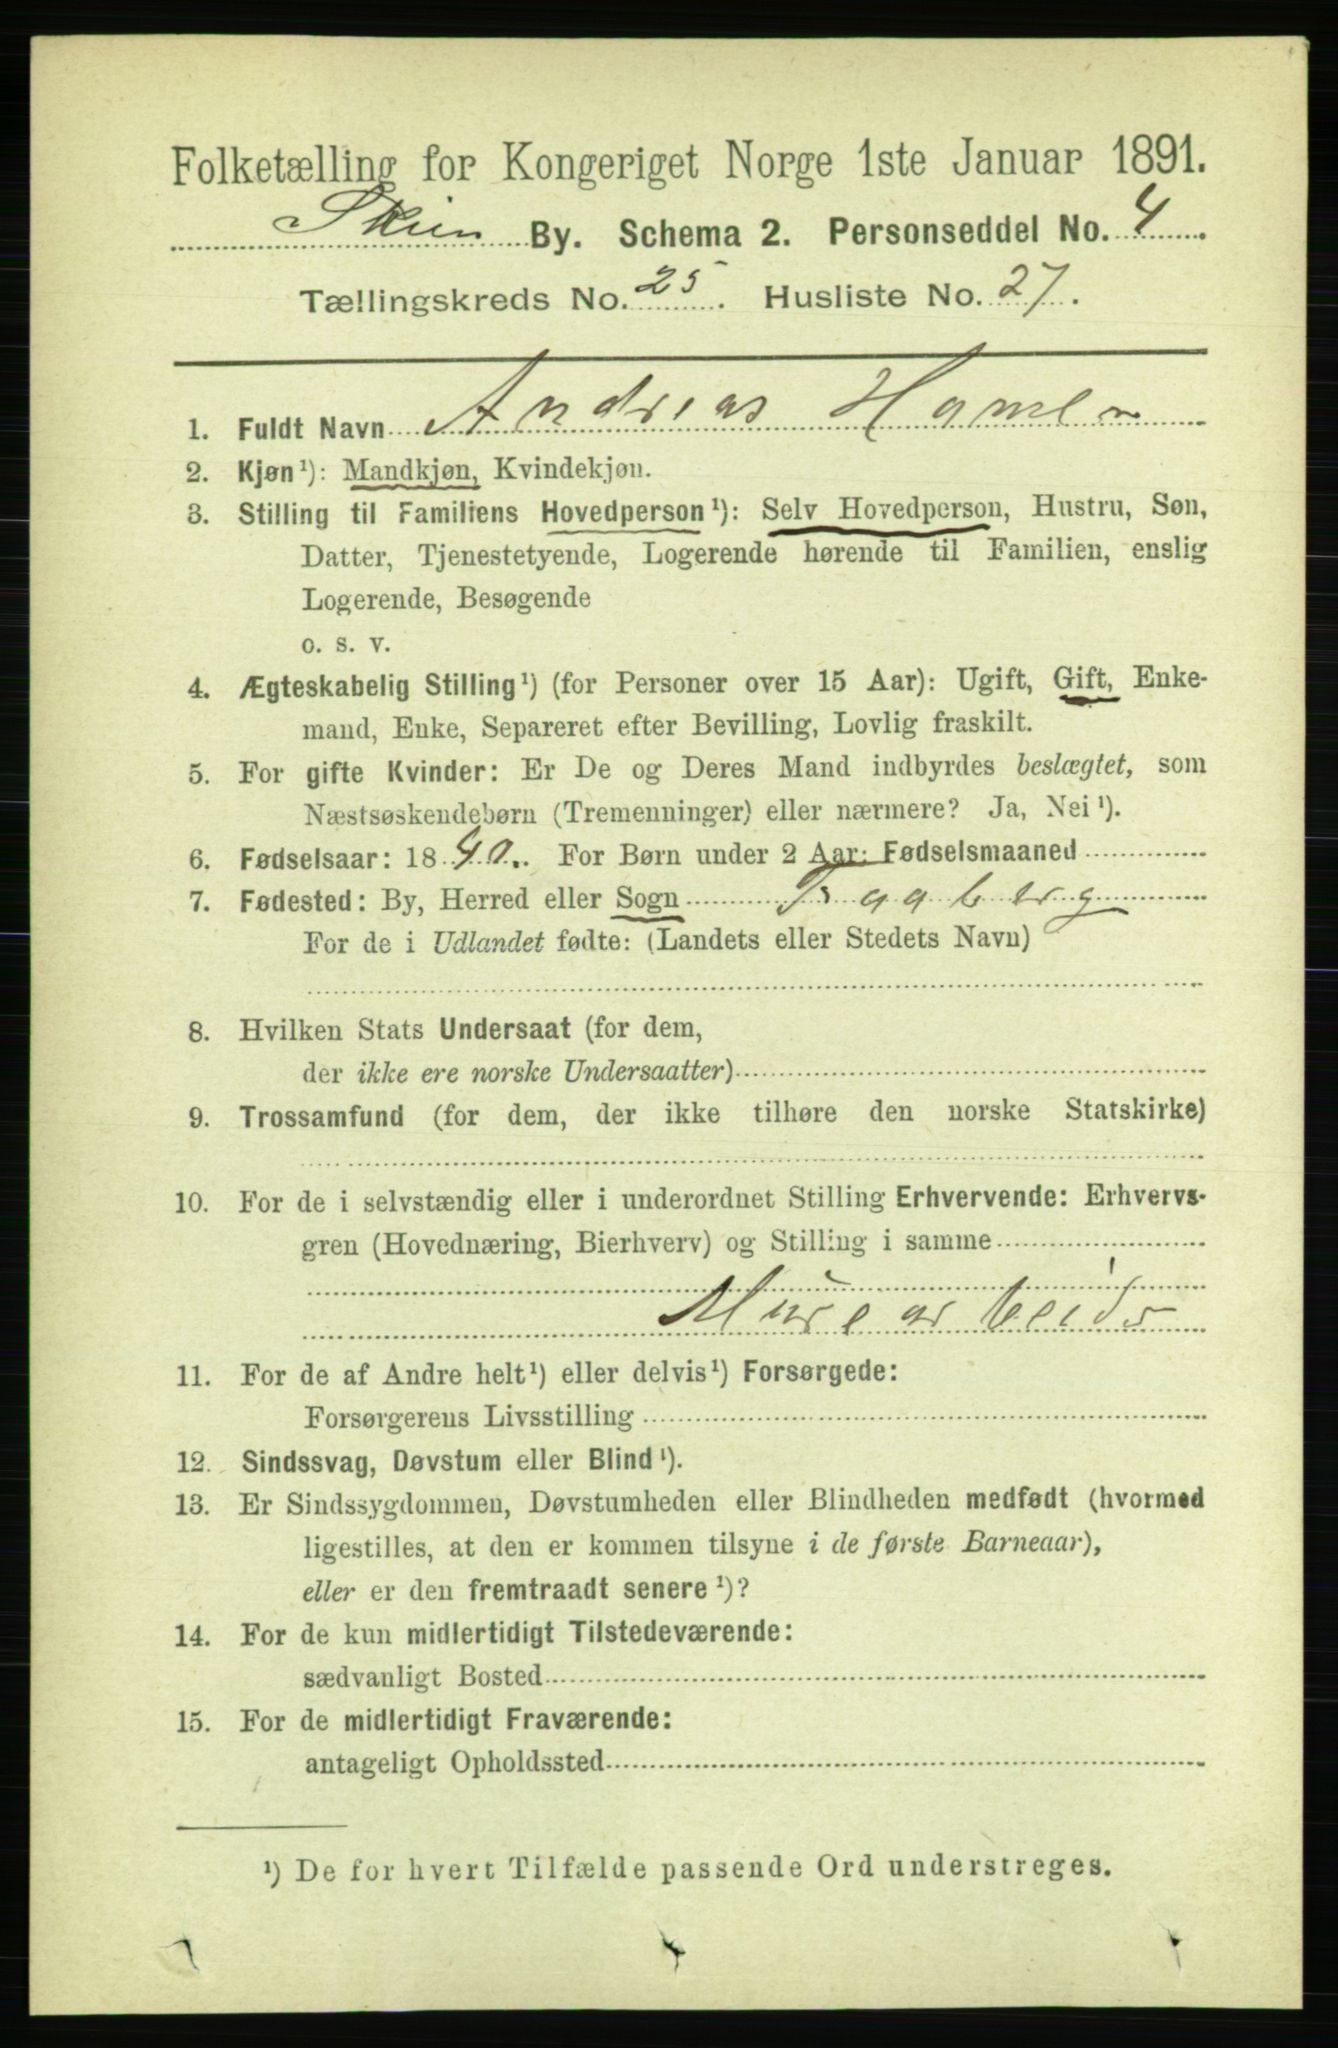 Folketælling for Kongeriget Norge 1ste Januar 1891.
Skien By. Schema 2. Personseddel No. 4
Tællingskreds No. 25. Husliste No. 27.
1. Fuldt Navn Andreas Hansen
2. Kjøn¹): Mandkjøn, Kvindekjøn.
3. Stilling til Familiens Hovedperson¹): Selv Hovedperson, Hustru, Søn,
Datter, Tjenestetyende, Logerende hørende til Familien, enslig
Logerende, Besøgende
o. s. v.
4. Ægteskabelig Stilling¹) (for Personer over 15 Aar): Ugift, Gift, Enke-
mand, Enke, Separeret efter Bevilling, Lovlig fraskilt.
5. For gifte Kvinder: Er De og Deres Mand indbyrdes beslægtet, som
Næstsøskendebørn (Tremenninger) eller nærmere? Ja, Nei¹).
6. Fødselsaar: 1840. For Børn under 2 Aar: Fødselsmaaned
7. Fødested: By, Herred eller Sogn
For de i Udlandet fødte: (Landets eller Stedets Navn)
8. Hvilken Stats Undersaat (for dem,
der ikke ere norske Undersaatter)
9. Trossamfund (for dem, der ikke tilhøre den norske Statskirke)
10. For de i selvstændig eller i underordnet Stilling Erhvervende: Erhvervs-
gren (Hovednæring, Bierhverv) og Stilling i samme
Murearbeids
11. For de af Andre helt¹) eller delvis¹) Forsørgede:
Forsørgerens Livsstilling
12. Sindssvag, Døvstum eller Blind¹).
13. Er Sindssygdommen, Døvstumheden eller Blindheden medfødt (hvormed
ligestilles, at den er kommen tilsyne i de første Barneaar),
eller er den fremtraadt senere¹)?
14. For de kun midlertidigt Tilstedeværende:
sædvanligt Bosted
15. For de midlertidigt Fraværende:
antageligt Opholdssted
¹) De for hvert Tilfælde passende Ord understreges.